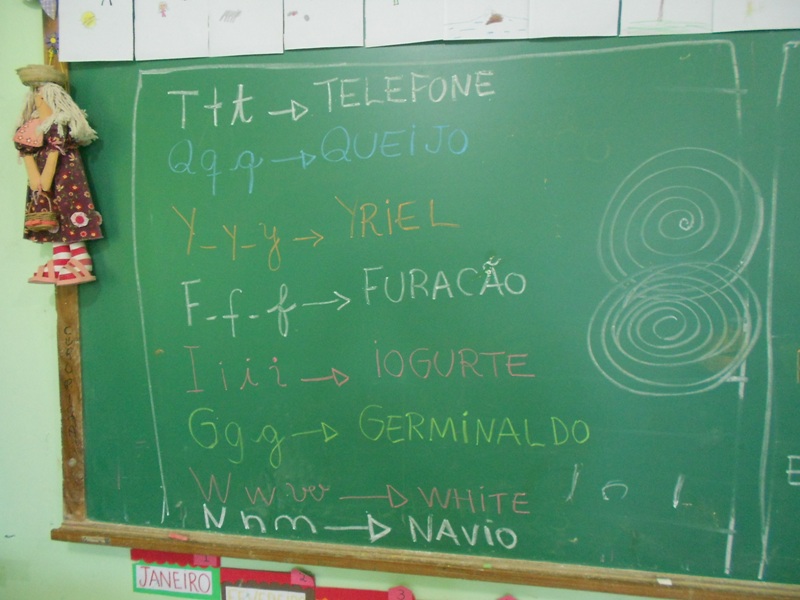 T t t → TELEFONE
Q q q → QUEIJO
Y - y - y → YRIEL
F - f - f → FURACÃO
I i i i → IOGURTE
G g g → GERMINALDO
W w w → WHITE
N n n → NAVIO
JANEIRO